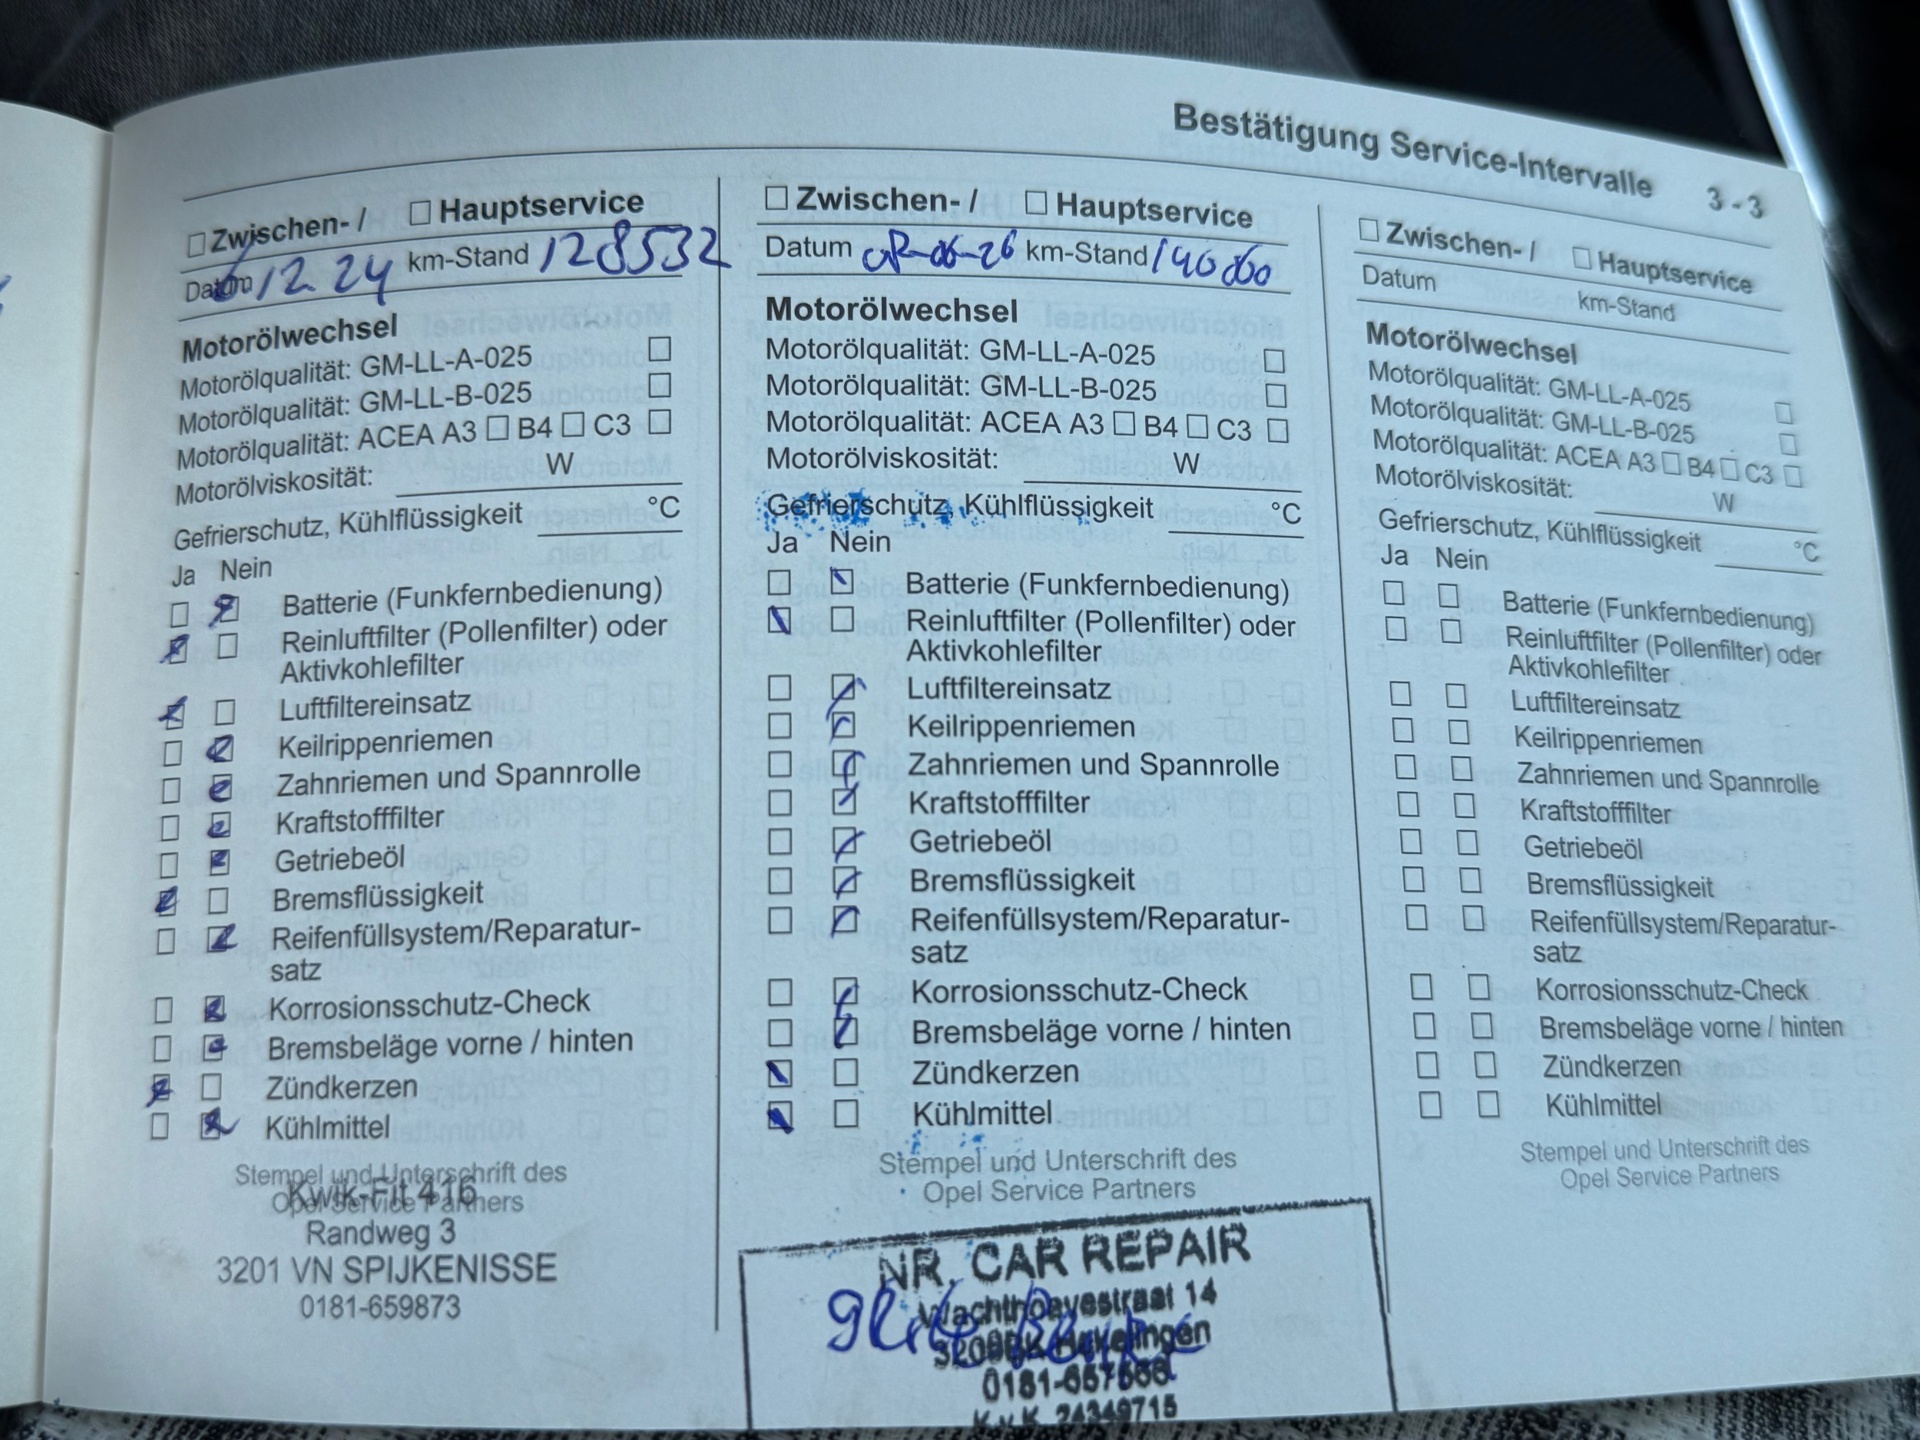 Bestätigung Service-Intervalle 3 - 3
Zwischen- / Hauptservice
Datum 6/12.24 km-Stand 128532
Motorölwechsel
Motorölqualität: GM-LL-A-025
Motorölqualität: GM-LL-B-025
Motorölqualität: ACEA A3 B4 C3
Motorölviskosität: W
Gefrierschutz, Kühlflüssigkeit °C
Ja Nein
Batterie (Funkfernbedienung)
Reinluftfilter (Pollenfilter) oder
Aktivkohlefilter
Luftfiltereinsatz
Keilrippenriemen
Zahnriemen und Spannrolle
Kraftstofffilter
Getriebeöl
Bremsflüssigkeit
Reifenfüllsystem/Reparatur-
satz
Korrosionsschutz-Check
Bremsbeläge vorne / hinten
Zündkerzen
Kühlmittel
Stempel und Unterschrift des
Opel Service Partners
Kwik-Fit 416
Randweg 3
3201 VN SPIJKENISSE
0181-659873
Zwischen- / Hauptservice
Datum km-Stand
Motorölwechsel
Motorölqualität: GM-LL-A-025
Motorölqualität: GM-LL-B-025
Motorölqualität: ACEA A3 B4 C3
Motorölviskosität: W
Gefrierschutz, Kühlflüssigkeit °C
Ja Nein
Batterie (Funkfernbedienung)
Reinluftfilter (Pollenfilter) oder
Aktivkohlefilter
Luftfiltereinsatz
Keilrippenriemen
Zahnriemen und Spannrolle
Kraftstofffilter
Getriebeöl
Bremsflüssigkeit
Reifenfüllsystem/Reparatur-
satz
Korrosionsschutz-Check
Bremsbeläge vorne / hinten
Zündkerzen
Kühlmittel
Stempel und Unterschrift des
Opel Service Partners
NR. CAR REPAIR
14
K.v.K. 24349715
Zwischen- / Hauptservice
Datum km-Stand
Motorölwechsel
Motorölqualität: GM-LL-A-025
Motorölqualität: GM-LL-B-025
Motorölqualität: ACEA A3 B4 C3
Motorölviskosität: W
Gefrierschutz, Kühlflüssigkeit °C
Ja Nein
Batterie (Funkfernbedienung)
Reinluftfilter (Pollenfilter) oder
Aktivkohlefilter
Luftfiltereinsatz
Keilrippenriemen
Zahnriemen und Spannrolle
Kraftstofffilter
Getriebeöl
Bremsflüssigkeit
Reifenfüllsystem/Reparatur-
satz
Korrosionsschutz-Check
Bremsbeläge vorne / hinten
Zündkerzen
Kühlmittel
Stempel und Unterschrift des
Opel Service Partners